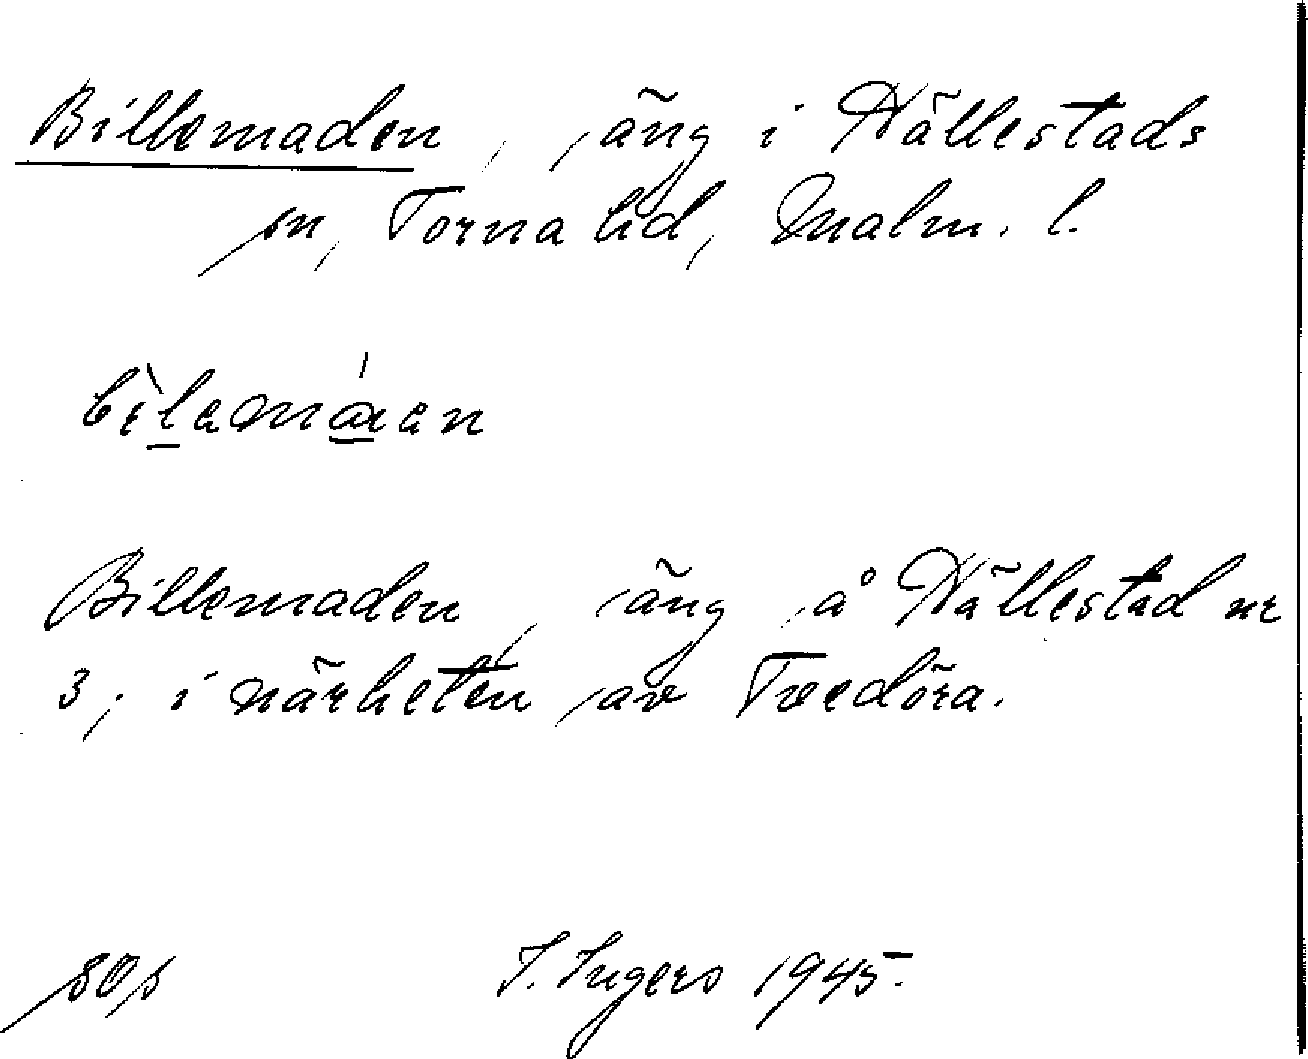 Billemaden, äng i Hällestads
sn, Torna hd, Malm. l.
Billemaden, äng å Hällestad nr
3, i närheten av Tvedöra.
I. Ingers 1945.